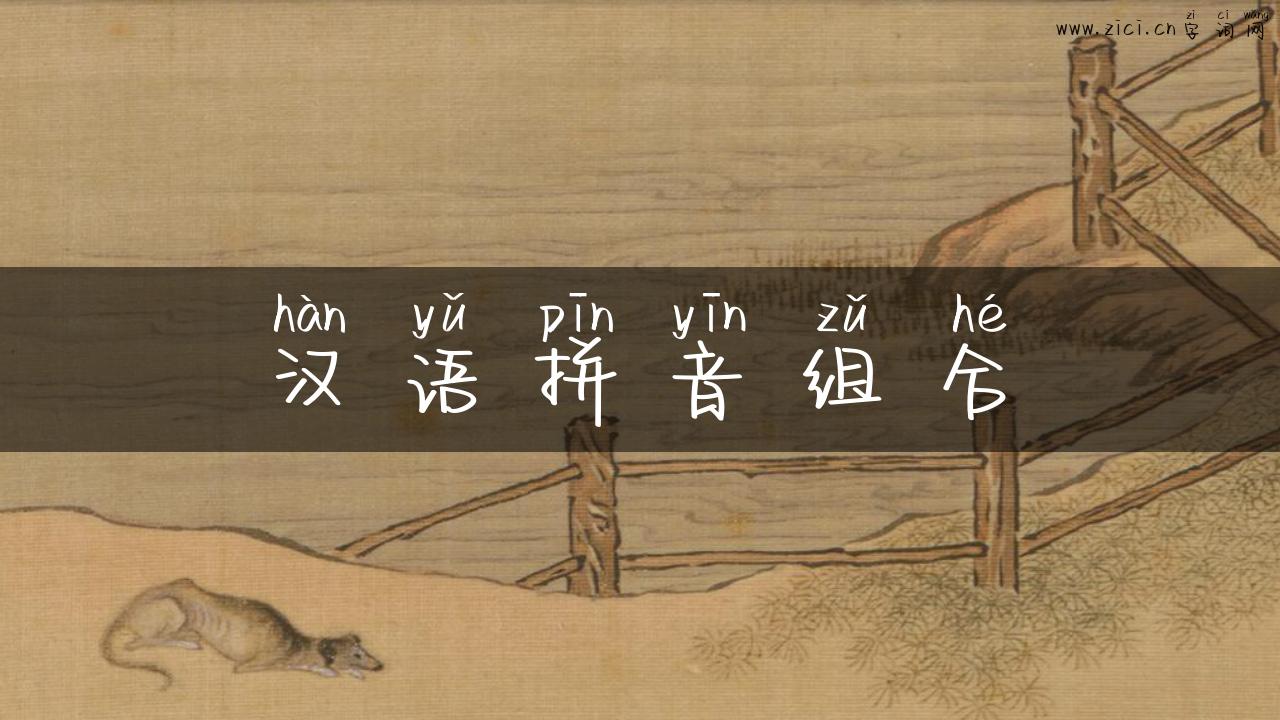 zì cí wǎng
www.zici.cn 字词网
hàn yǔ pīn yīn zǔ hé
汉语拼音组合